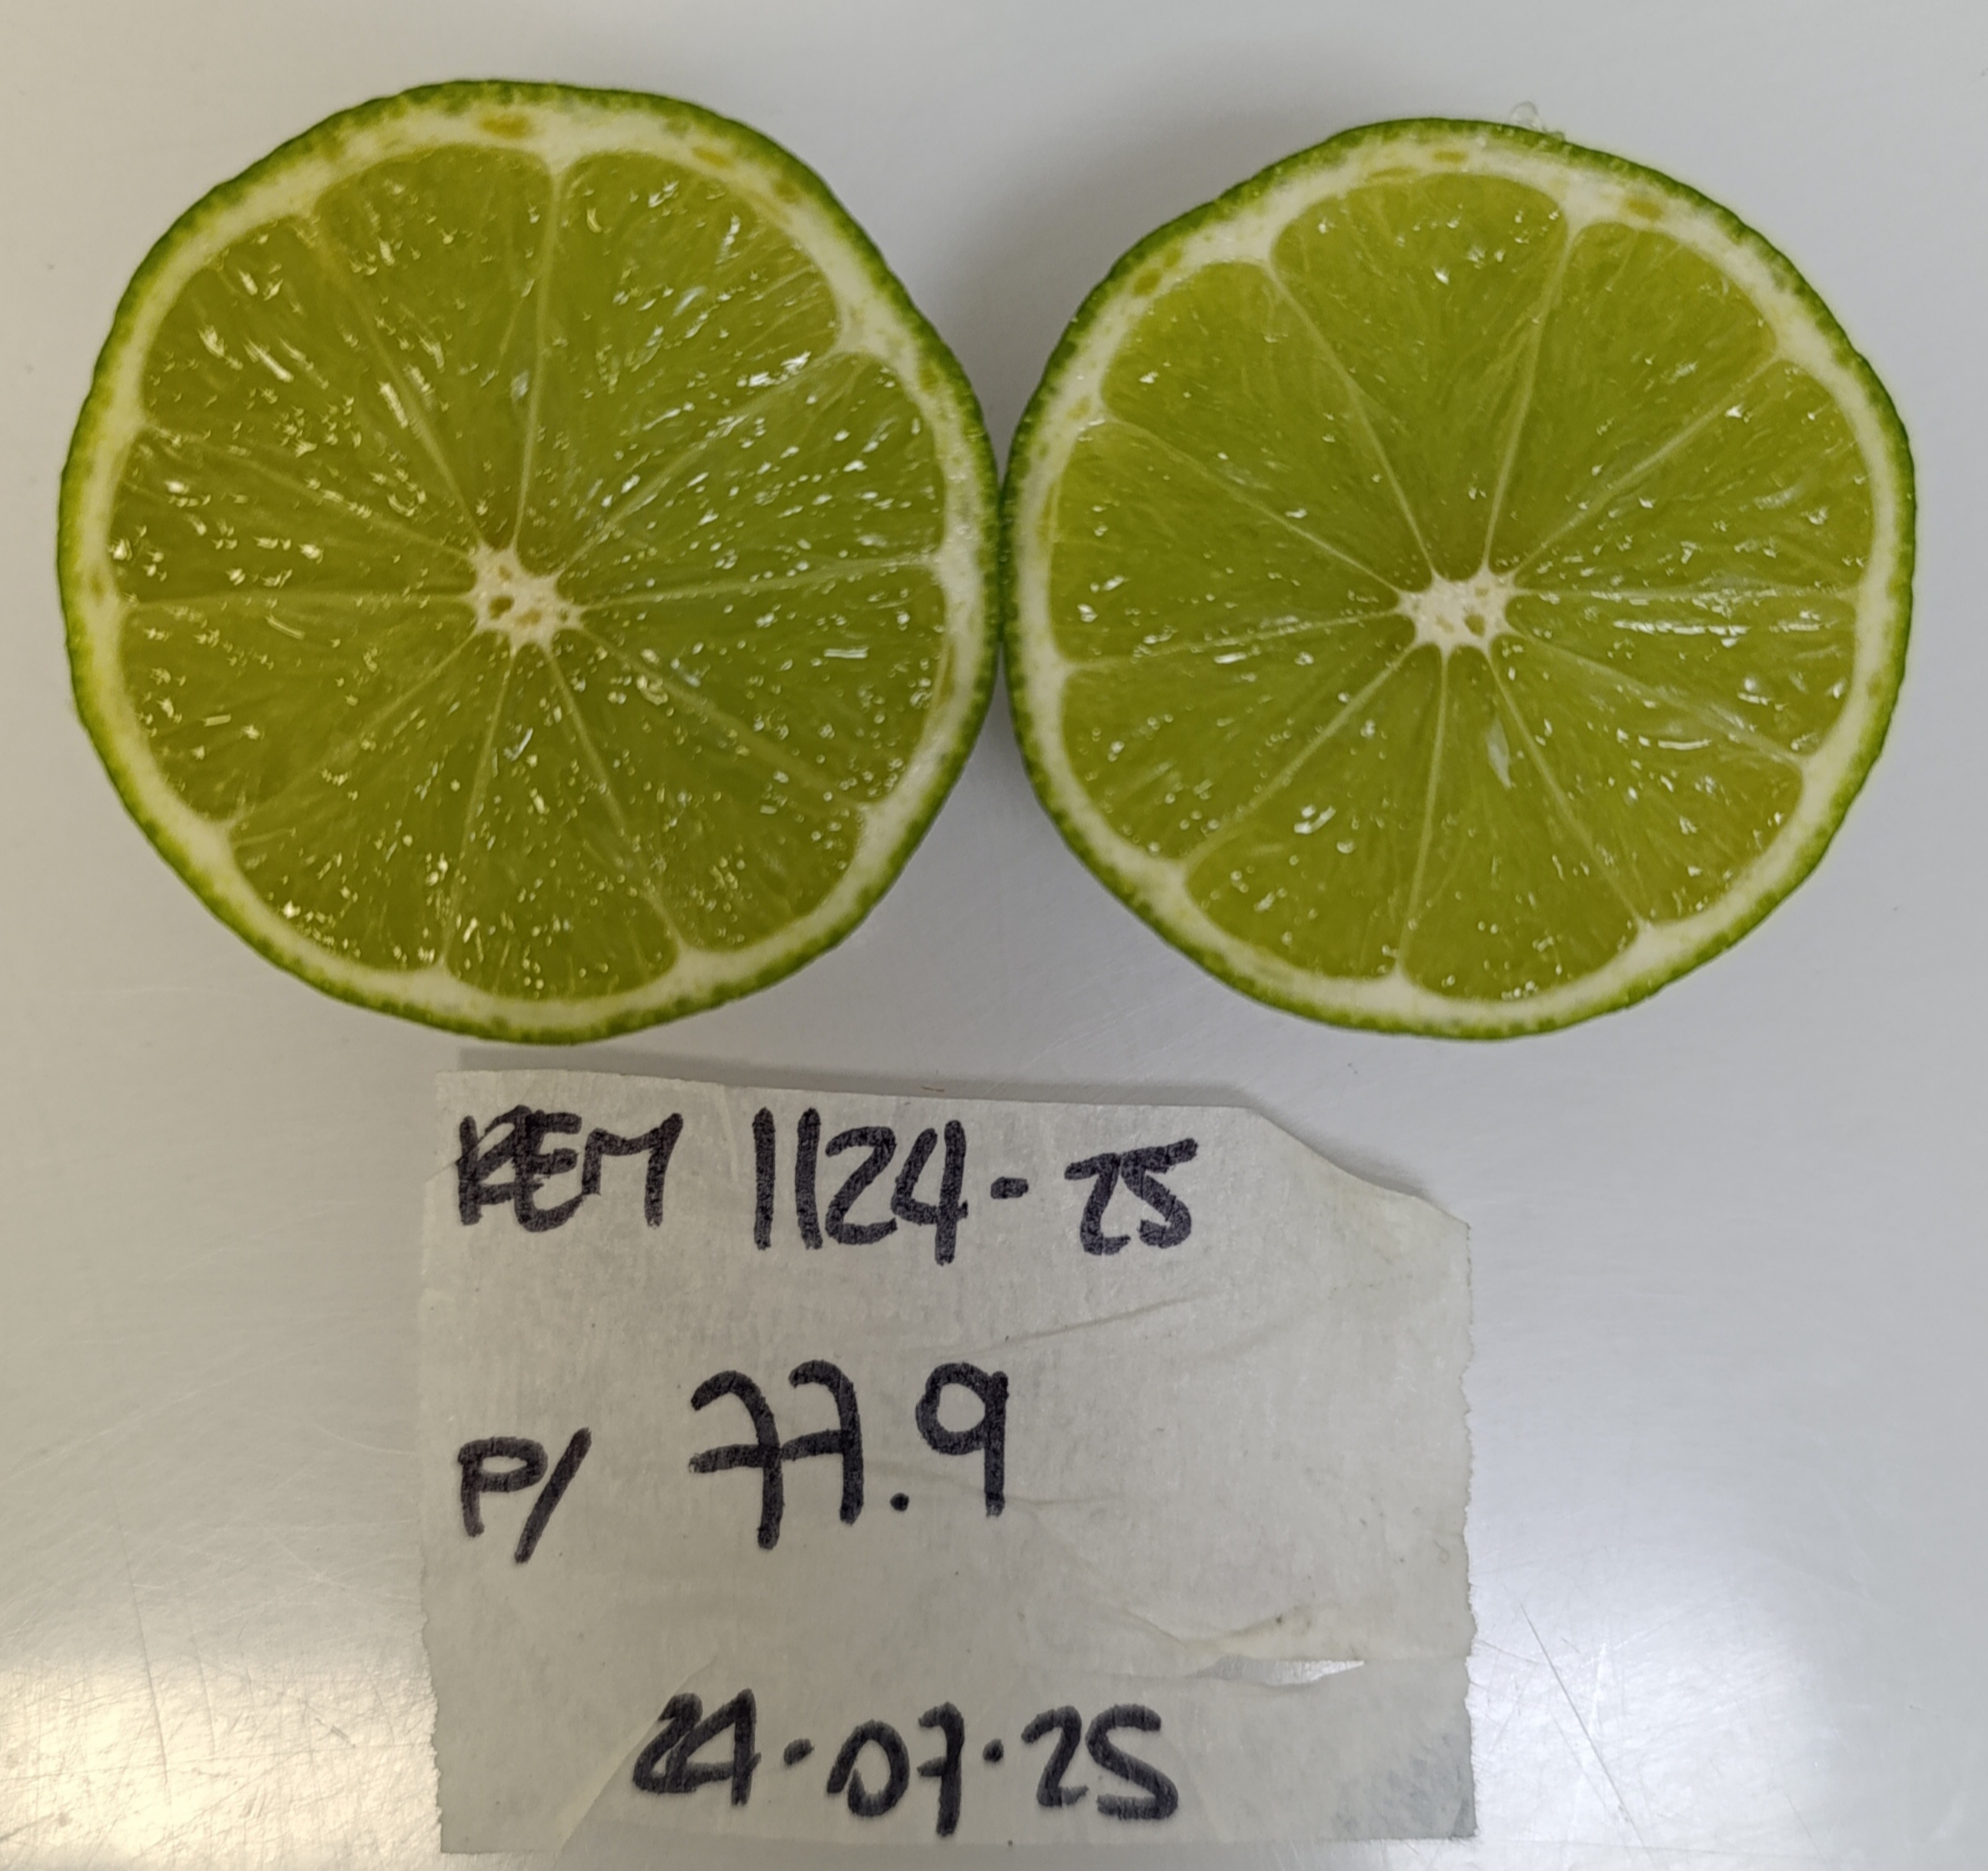 REM 1124-25
P/ 77.9
24·07·25